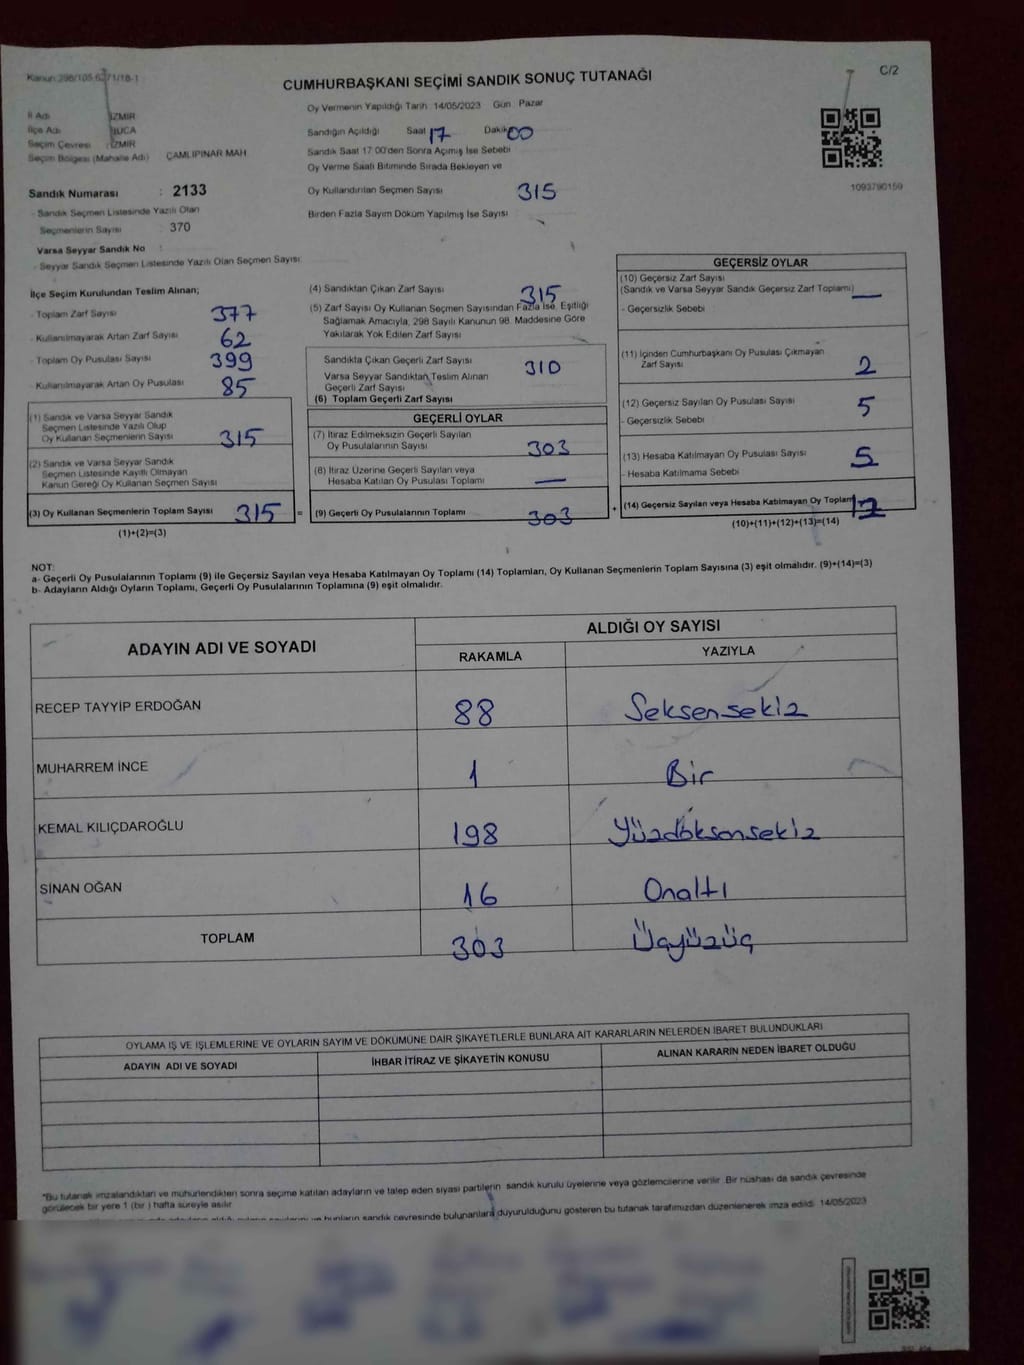 Kanun:298/105,6271/18-1
C/2
CUMHURBAŞKANI SEÇİMİ SANDIK SONUÇ TUTANAĞI
İl Adı : İZMİR
İlçe Adı : BUCA
Seçim Çevresi : İZMİR
Seçim Bölgesi (Mahalle Adı) ÇAMLIPINAR MAH
Sandık Numarası : 2133
- Sandık Seçmen Listesinde Yazılı Olan
Seçmenlerin Sayısı 370
Varsa Seyyar Sandık No :
- Seyyar Sandık Seçmen Listesinde Yazılı Olan Seçmen Sayısı
Oy Vermenin Yapıldığı Tarih 14/05/2023 Gün Pazar
Sandığın Açıldığı Saat 17 Dakika 00
Sandık Saat 17:00'den Sonra Açımış İse Sebebi
Oy Verme Saati Bitiminde Sırada Bekleyen ve
Oy Kullandırılan Seçmen Sayısı 315
Birden Fazla Sayım Döküm Yapılmış İse Sayısı
1093790159
İlçe Seçim Kurulundan Teslim Alınan;
- Toplam Zarf Sayısı 377
- Kullanılmayarak Artan Zarf Sayısı 62
- Toplam Oy Pusulası Sayısı 399
- Kullanılmayarak Artan Oy Pusulası 85
(1) Sandık ve Varsa Seyyar Sandık
Seçmen Listesinde Yazılı Olup
Oy Kullanan Seçmenlerin Sayısı 315
(2) Sandık ve Varsa Seyyar Sandık
Seçmen Listesinde Kayıtlı Olmayan
Kanun Gereği Oy Kullanan Seçmen Sayısı
(3) Oy Kullanan Seçmenlerin Toplam Sayısı 315 =
(1)+(2)=(3)
(4) Sandıktan Çıkan Zarf Sayısı 315
(5) Zarf Sayısı Oy Kullanan Seçmen Sayısından Fazla İse, Eşitliği
Sağlamak Amacıyla, 298 Sayılı Kanunun 98. Maddesine Göre
Yakılarak Yok Edilen Zarf Sayısı
Sandıkta Çıkan Geçerli Zarf Sayısı 310
Varsa Seyyar Sandıktan Teslim Alınan
Geçerli Zarf Sayısı
(6) Toplam Geçerli Zarf Sayısı
GEÇERLİ OYLAR
(7) İtiraz Edilmeksizin Geçerli Sayılan
Oy Pusulalarının Sayısı 303
(8) İtiraz Üzerine Geçerli Sayılan veya
Hesaba Katılan Oy Pusulası Toplamı —
(9) Geçerli Oy Pusulalarının Toplamı 303 +
GEÇERSİZ OYLAR
(10) Geçersiz Zarf Sayısı
(Sandık ve Varsa Seyyar Sandık Geçersiz Zarf Toplamı) —
- Geçersizlik Sebebi
(11) İçinden Cumhurbaşkanı Oy Pusulası Çıkmayan
Zarf Sayısı 2
(12) Geçersiz Sayılan Oy Pusulası Sayısı 5
- Geçersizlik Sebebi
(13) Hesaba Katılmayan Oy Pusulası Sayısı 5
- Hesaba Katılmama Sebebi
(14) Geçersiz Sayılan veya Hesaba Katılmayan Oy Toplamı 12
(10)+(11)+(12)+(13)=(14)
NOT:
a- Geçerli Oy Pusulalarının Toplamı (9) ile Geçersiz Sayılan veya Hesaba Katılmayan Oy Toplamı (14) Toplamları, Oy Kullanan Seçmenlerin Toplam Sayısına (3) eşit olmalıdır. (9)+(14)=(3)
b- Adayların Aldığı Oyların Toplamı, Geçerli Oy Pusulalarının Toplamına (9) eşit olmalıdır.
ADAYIN ADI VE SOYADI
ALDIĞI OY SAYISI
RAKAMLA YAZIYLA
RECEP TAYYİP ERDOĞAN 88 Seksensekiz
MUHARREM İNCE 1 Bir
KEMAL KILIÇDAROĞLU 198 Yüzdoksansekiz
SİNAN OĞAN 16 Onaltı
TOPLAM 303 Üçyüzüç
OYLAMA İŞ VE İŞLEMLERİNE VE OYLARIN SAYIM VE DÖKÜMÜNE DAİR ŞİKAYETLERLE BUNLARA AİT KARARLARIN NELERDEN İBARET BULUNDUKLARI
ADAYIN ADI VE SOYADI İHBAR İTİRAZ VE ŞİKAYETİN KONUSU ALINAN KARARIN NEDEN İBARET OLDUĞU
*Bu tutanak imzalandıktan ve mühürlendikten sonra seçime katılan adayların ve talep eden siyasi partilerin sandık kurulu üyelerine veya gözlemcilerine verilir. Bir nüshası da sandık çevresinde
görülecek bir yere 1 (bir ) hafta süreyle asılır.
bunların sandık çevresinde bulunanlara duyurulduğunu gösteren bu tutanak tarafımızdan düzenlenerek imza edildi. 14/05/2023